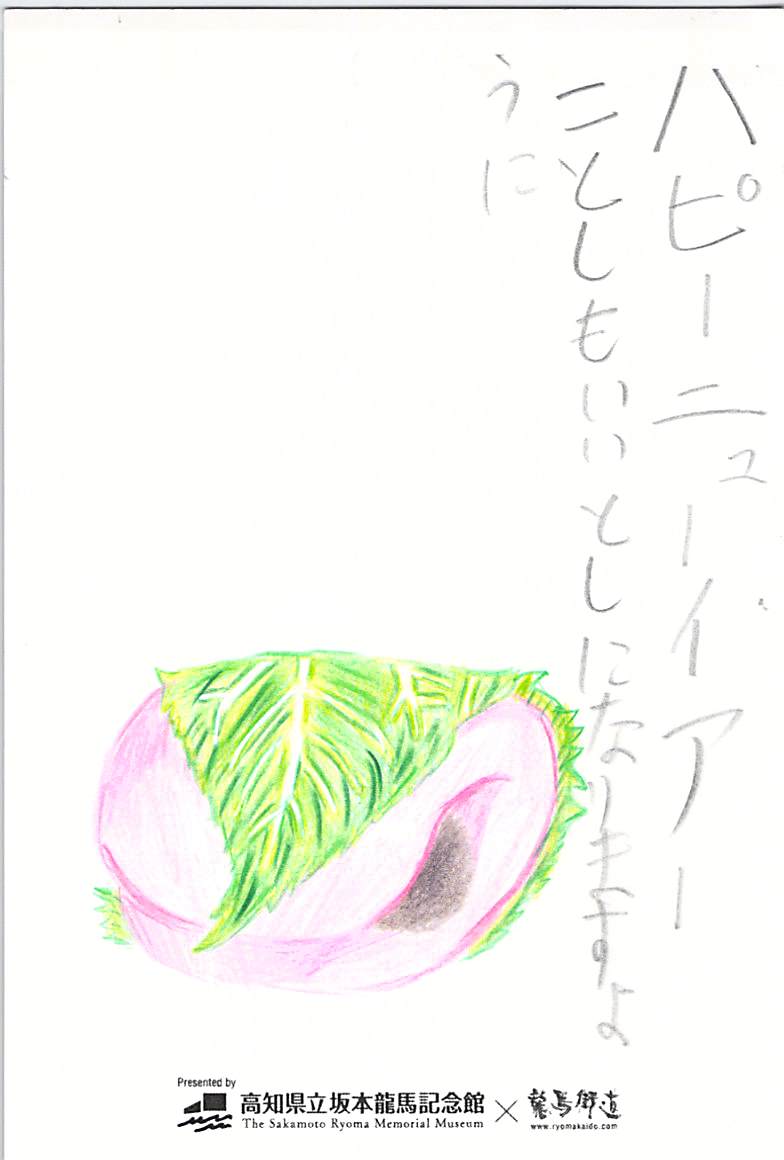 ハピーニューイアー
ことしもいいとしになりますよ
うに
Presented by
高知県立坂本龍馬記念館
The Sakamoto Ryoma Memorial Museum
×
龍馬街道
www.ryomakaido.com